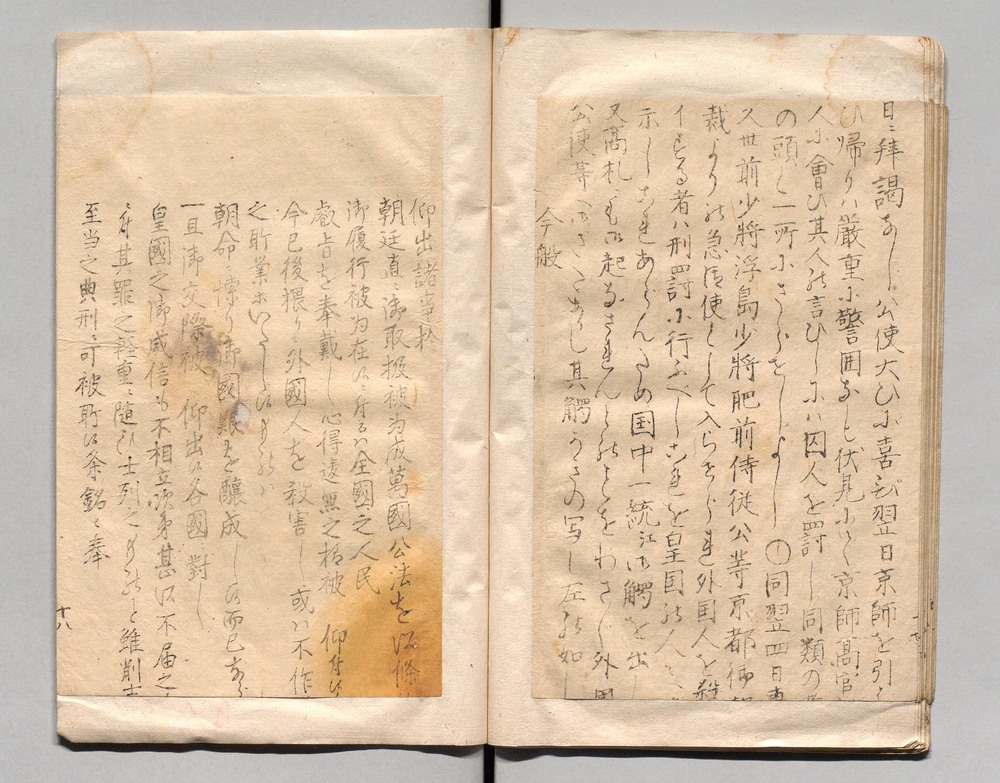 日ニ拝謁なし公使大ひに喜び翌日京師を引
ひ帰りハ厳重に警囲なして伏見にて京師高官
人に會ひ其人の言ひしにハ囚人を罰し同類の
の頭と一所にさらせしよし ○同翌四日東
久世前少将浮島少将肥前侍従公等京都
裁より急使として入らせられ外国人を殺
する者ハ刑罰に行ふべしこれを皇国の人
示しこれあらんため国中一統江御觸を出し
又高札も御起なされんとのことをわざ〳〵外国
公使等へ 其觸がきの写し左の如し
今般
仰出諸事於
朝廷直ニ御取扱被為成萬國公法を以條
御履行被為在候ニ付てハ全國之人民
叡旨を奉戴し心得違無之様被 仰付候
今已後猥りニ外國人を殺害し或ハ不作
之所業等いたし候ものハ
朝命ニ悖り御國難を醸成し候而已あらず
一旦御交際被 仰出候各國ニ對し
皇國之御威信も不相立次第甚以不届之
ニ付其罪之軽重ニ随ひ士列之ものと雖削士
至当之典刑ニ可被所候条銘々奉
十八